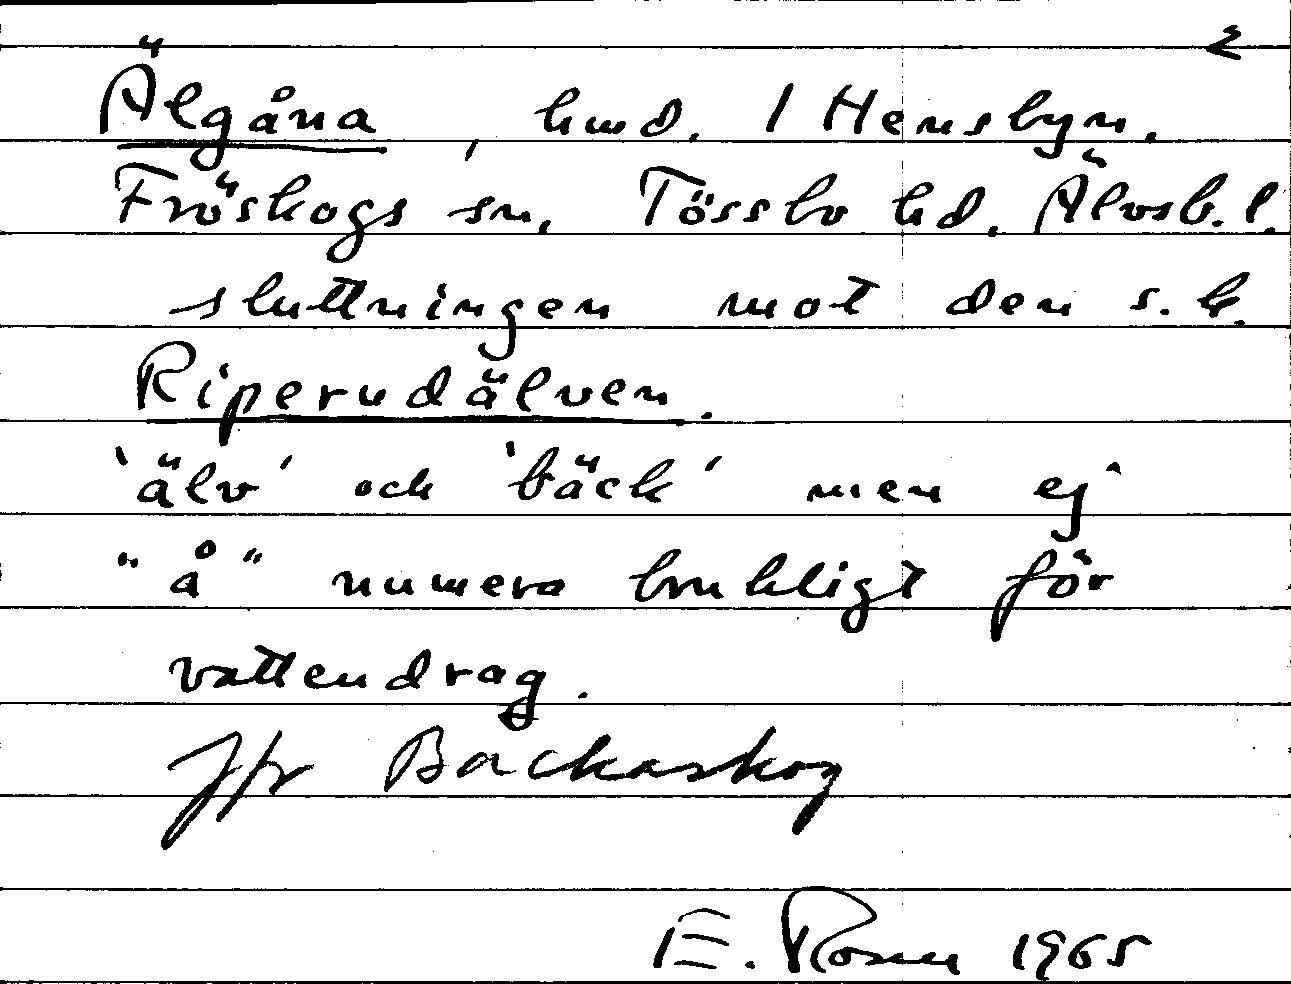 2
Älgåna, hmd. 1 Hensbyn.
Fröskogs sn, Tössbo hd. Älvsb. l.
sluttningen mot den s.k.
Riperudälven.
'älv' och 'bäck' men ej
"å" numera brukligt för
vattendrag.
Jfr Backaskog
E. Rosen 1965